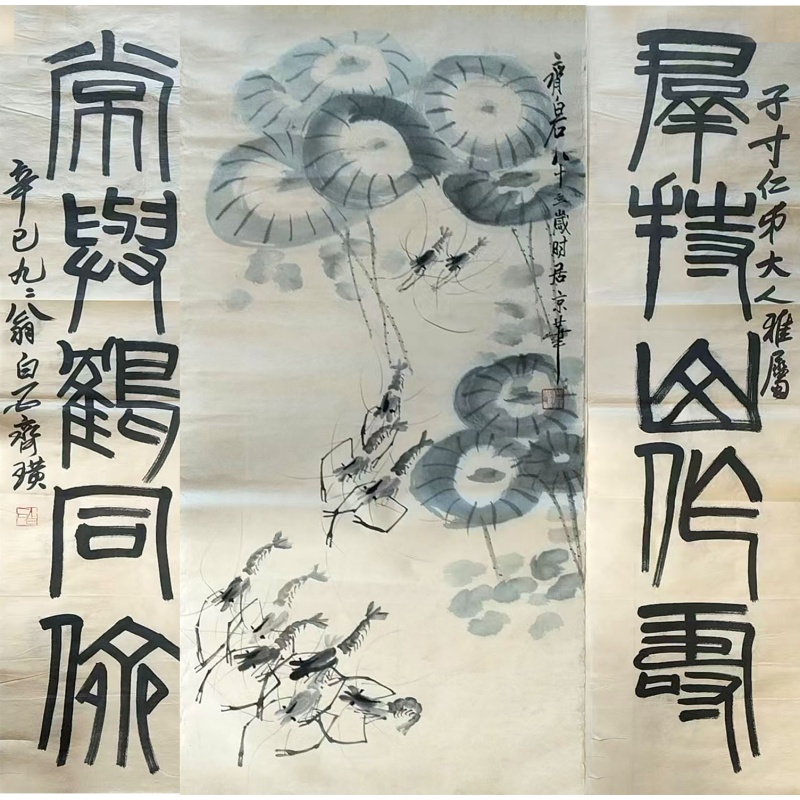 子寸仁弟大人雅屬
羣持山作壽
齊白石八十五歲时居京華
常與鶴同儕
辛巳九二翁白石齊璜